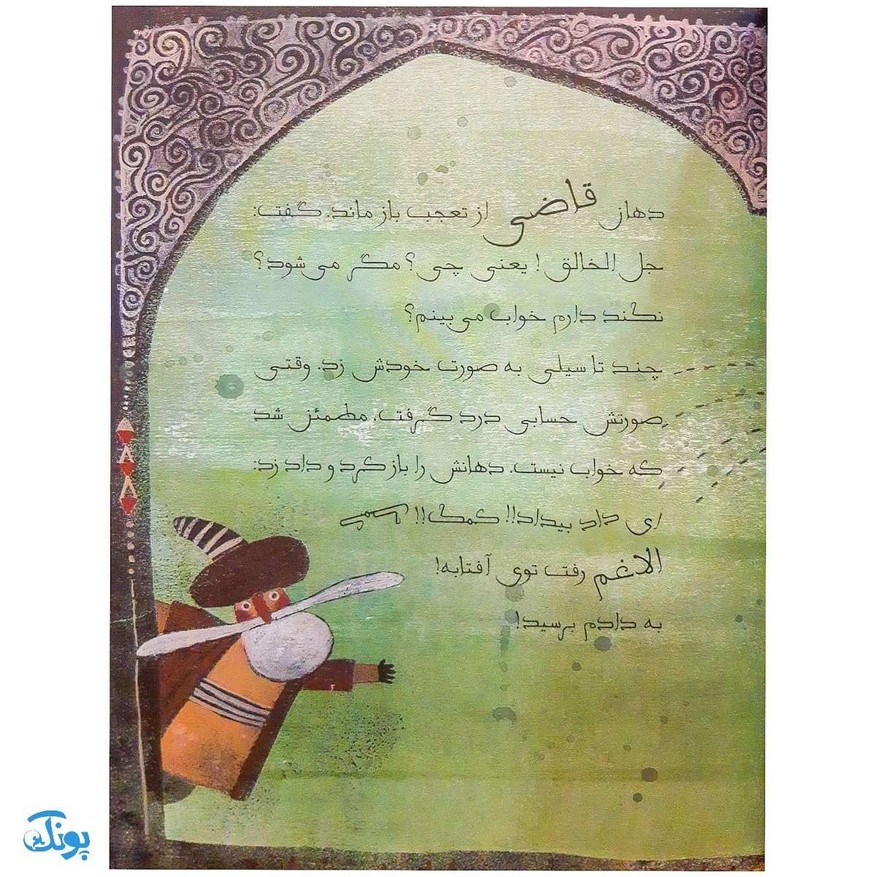 دهان قاضی از تعجب باز ماند. گفت:
جل الخالق! یعنی چی؟ مگر می‌شود؟
نکند دارم خواب می‌بینم؟
چند تا سیلی به صورت خودش زد. وقتی
صورتش حسابی درد گرفت، مطمئن شد
که خواب نیست. دهانش را باز کرد و داد زد:
ای داد بیداد!! کمک!!
الاغم رفت توی آفتابه!
به دادم برسید!
پونک